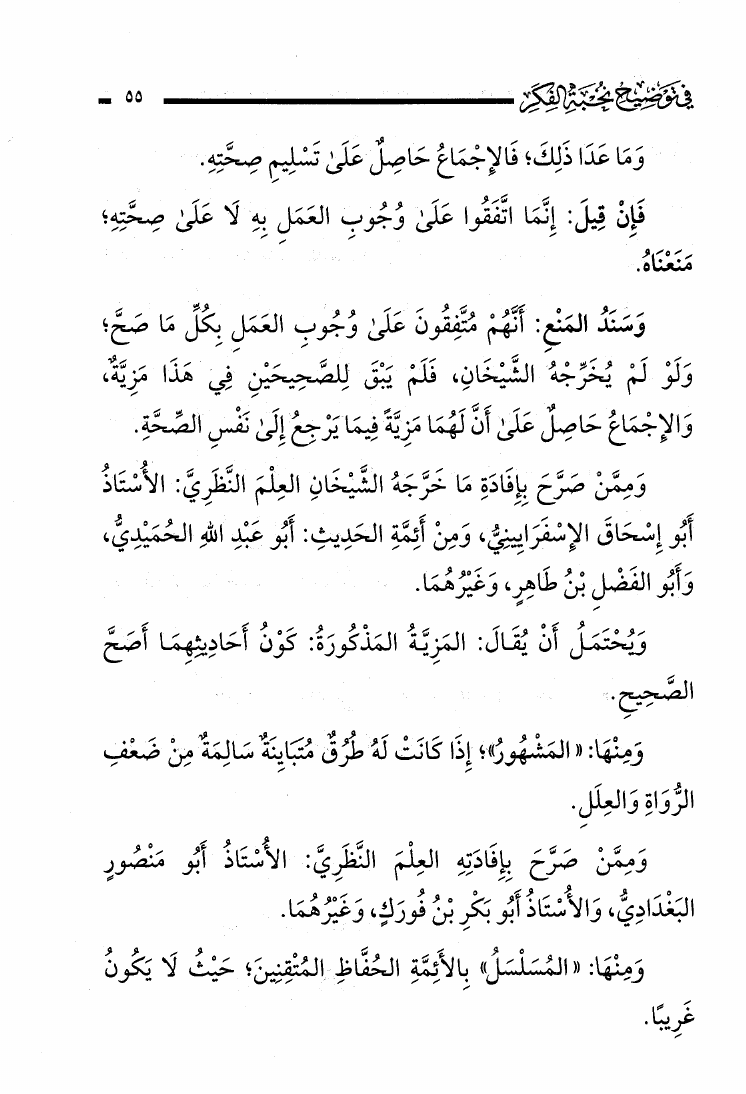 في توضيح نخبة الفكر ٥٥
وَمَا عَدَا ذَلِكَ؛ فَالإِجْمَاعُ حَاصِلٌ عَلَىٰ تَسْلِيمِ صِحَّتِهِ.
فَإِنْ قِيلَ: إِنَّمَا اتَّفَقُوا عَلَىٰ وُجُوبِ العَمَلِ بِهِ لَا عَلَىٰ صِحَّتِهِ؛
مَنَعْنَاهُ.
وَسَنَدُ المَنْعِ: أَنَّهُمْ مُتَّفِقُونَ عَلَىٰ وُجُوبِ العَمَلِ بِكُلِّ مَا صَحَّ؛
وَلَوْ لَمْ يُخَرِّجْهُ الشَّيْخَانِ، فَلَمْ يَبْقَ لِلصَّحِيحَيْنِ فِي هَذَا مَزِيَّةٌ،
وَالإِجْمَاعُ حَاصِلٌ عَلَىٰ أَنَّ لَهُمَا مَزِيَّةً فِيمَا يَرْجِعُ إِلَىٰ نَفْسِ الصِّحَّةِ.
وَمِمَّنْ صَرَّحَ بِإِفَادَةِ مَا خَرَّجَهُ الشَّيْخَانِ العِلْمَ النَّظَرِيَّ: الأُسْتَاذُ
أَبُو إِسْحَاقَ الإِسْفَرَايِينِيُّ، وَمِنْ أَئِمَّةِ الحَدِيثِ: أَبُو عَبْدِ اللهِ الحُمَيْدِيُّ،
وَأَبُو الفَضْلِ بْنُ طَاهِرٍ، وَغَيْرُهُمَا.
وَيُحْتَمَلُ أَنْ يُقَالَ: المَزِيَّةُ المَذْكُورَةُ: كَوْنُ أَحَادِيثِهِمَا أَصَحَّ
الصَّحِيحِ.
وَمِنْهَا: «المَشْهُورُ»؛ إِذَا كَانَتْ لَهُ طُرُقٌ مُتَبَايِنَةٌ سَالِمَةٌ مِنْ ضَعْفِ
الرُّوَاةِ وَالعِلَلِ.
وَمِمَّنْ صَرَّحَ بِإِفَادَتِهِ العِلْمَ النَّظَرِيَّ: الأُسْتَاذُ أَبُو مَنْصُورٍ
البَغْدَادِيُّ، وَالأُسْتَاذُ أَبُو بَكْرِ بْنُ فُورَكٍ، وَغَيْرُهُمَا.
وَمِنْهَا: «المُسَلْسَلُ» بِالأَئِمَّةِ الحُفَّاظِ المُتْقِنِينَ؛ حَيْثُ لَا يَكُونُ
غَرِيبًا.